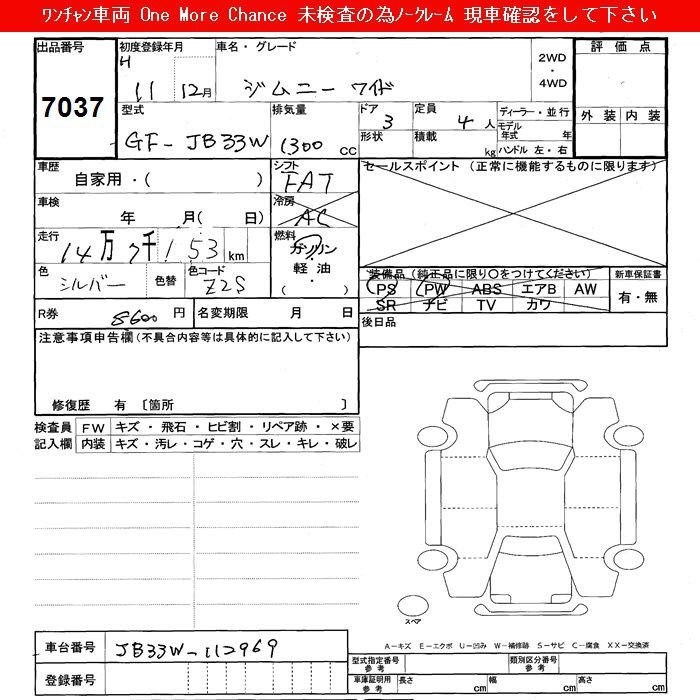 ﾜﾝﾁｬﾝ車両 One More Chance 未検査の為ﾉｰｸﾚｰﾑ 現車確認をして下さい
出品番号 初度登録年月 車名・グレード 2WD・4WD 評価点
7037 H 11 12月 ジムニー ワイド
型式 排気量 ドア 定員 ディーラー・並行 外装 内装
GF-JB33W 1300 CC 3 4人 モデル年式 年
形状 積載 kg ハンドル 左・右
車歴 シフト セールスポイント (正常に機能するものに限ります)
自家用・( ) FAT
車検 年 月( 日) 冷房 AC
走行 14万7千153 km 燃料 ガソリン 軽油・( )
色 シルバー 色替 色コード Z2S
装備品 (純正品に限り○をつけてください) 新車保証書
PS PW ABS エアB AW 有・無
SR ナビ TV カワ
R券 8600円 名変期限 月 日 後日品
注意事項申告欄(不具合内容等は具体的に記入して下さい)
修復歴 有 〔箇所 〕
検査員 FW キズ・飛石・ヒビ割・リペア跡・×要
記入欄 内装 キズ・汚レ・コゲ・穴・スレ・キレ・破レ
スペア
A-キズ E-エクボ U-凹み W-補修跡 S-サビ C-腐食 XX-交換済
車台番号 JB33W-112969
型式指定番号 参考 類別区分番号 参考
登録番号
車庫証明用 参考 長さ cm 幅 cm 高さ cm